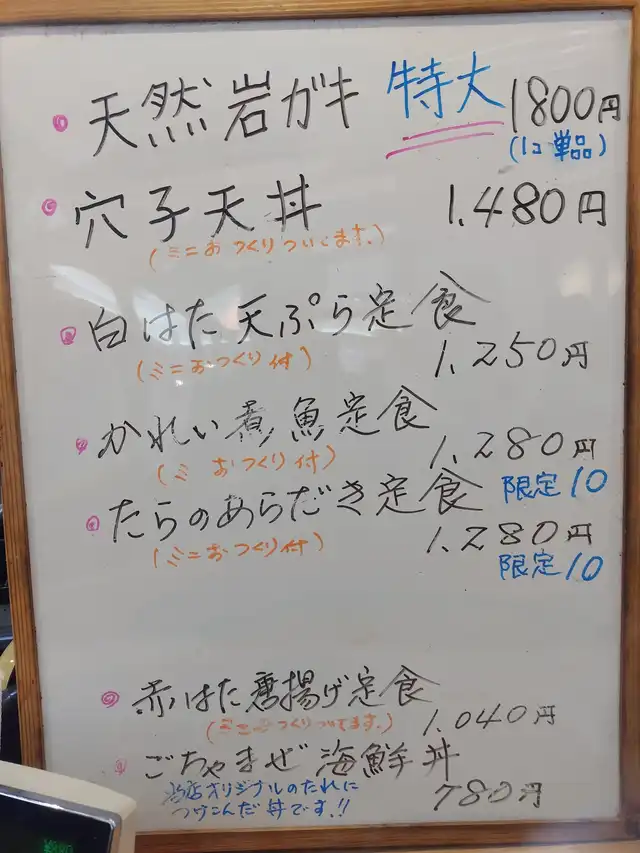 天然岩ガキ 特大 1800円
(1コ 単品)
穴子天丼 1.480円
(ミニおつくりついてます。)
白はた天ぷら定食
(ミニおつくり付) 1.250円
かれい煮魚定食
(ミ おつくり付) 1.280円
限定10
たらのあらだき定食
(ミニおつくり付) 1.280円
限定10
赤はた唐揚げ定食
(ミニおつくりついてます。) 1.040円
ごちゃまぜ海鮮丼
当店オリジナルのたれに 780円
つけこんだ丼です!!